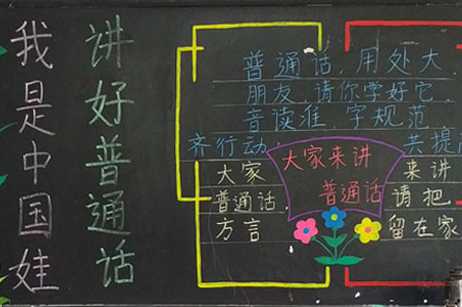 我是中国娃
讲好普通话
普通话,用处大,
朋友,请你学好它,
音读准,字规范
齐行动, 共提高
大家 来讲
普通话, 请把
方言 留在家
大家来讲
普通话